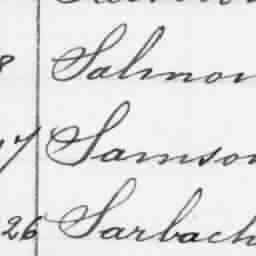 8 Salmon
17 Samson
26 Sarbach